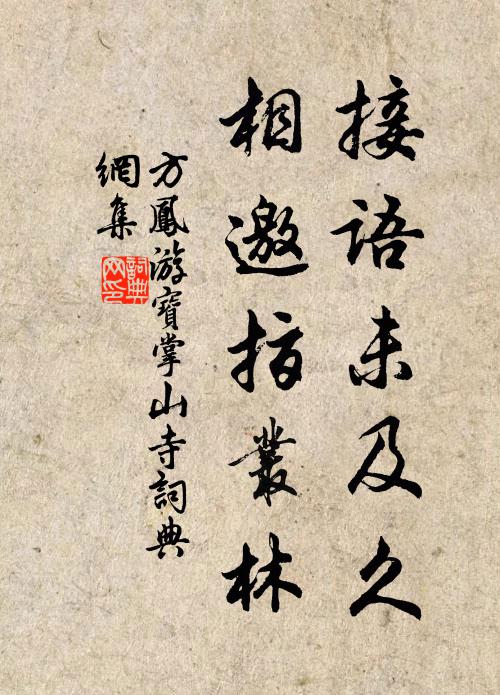 接語未及久
相邀指叢林
方鳳游寶掌山寺詞典
網集
詞典
网印